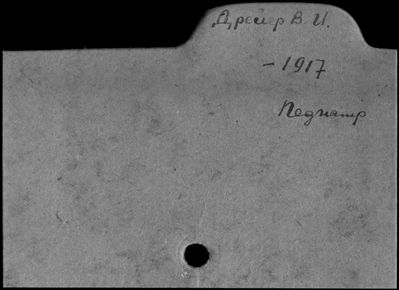 Дрейер В. И.
- 1917
Педиатр